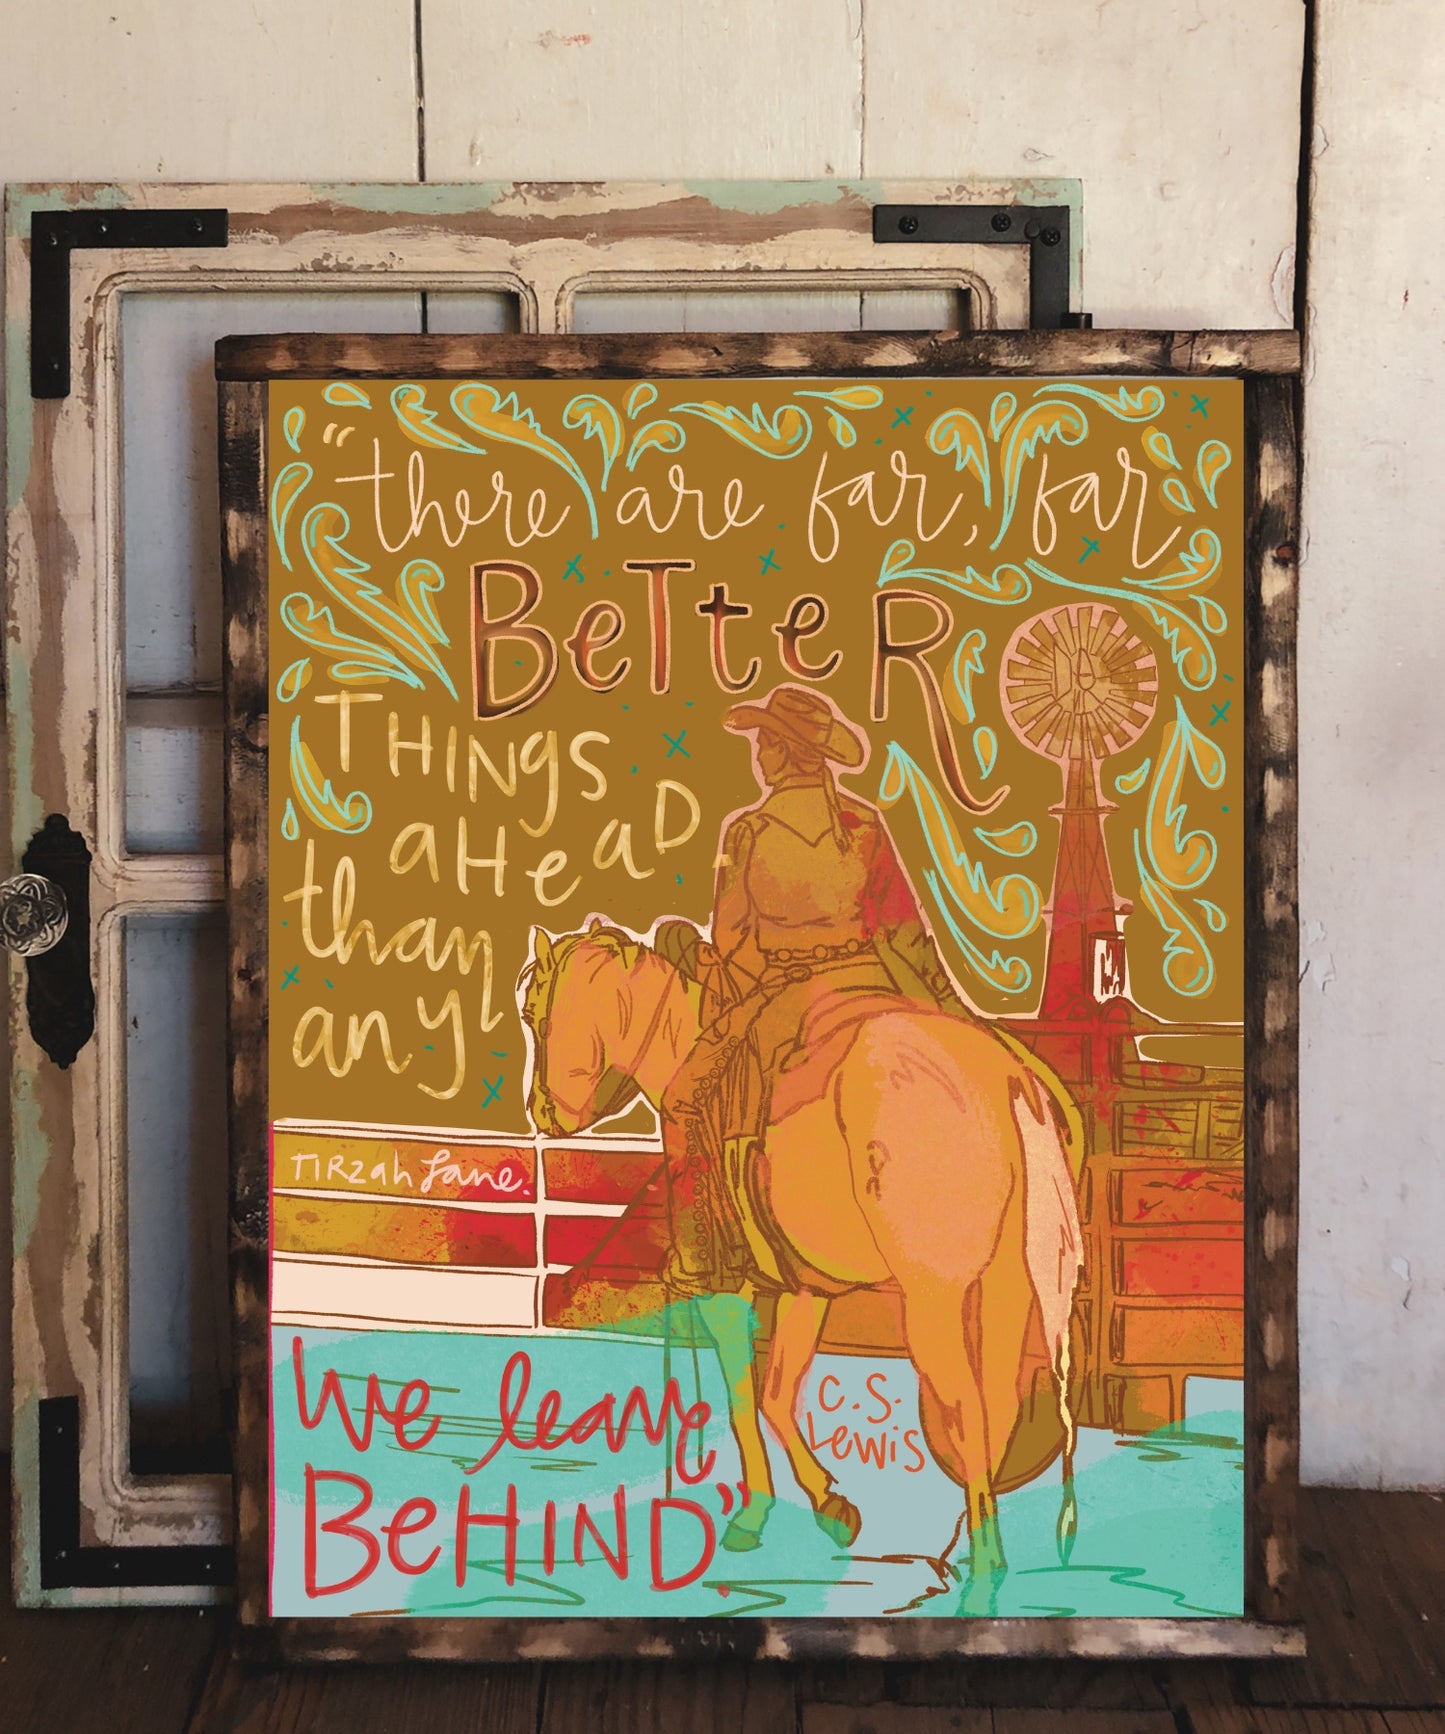 "there are far, far
BeTTeR
THINgS
aHeaD
than
any
TIRZah Lane.
We leave
BeHIND."
C.S.
Lewis